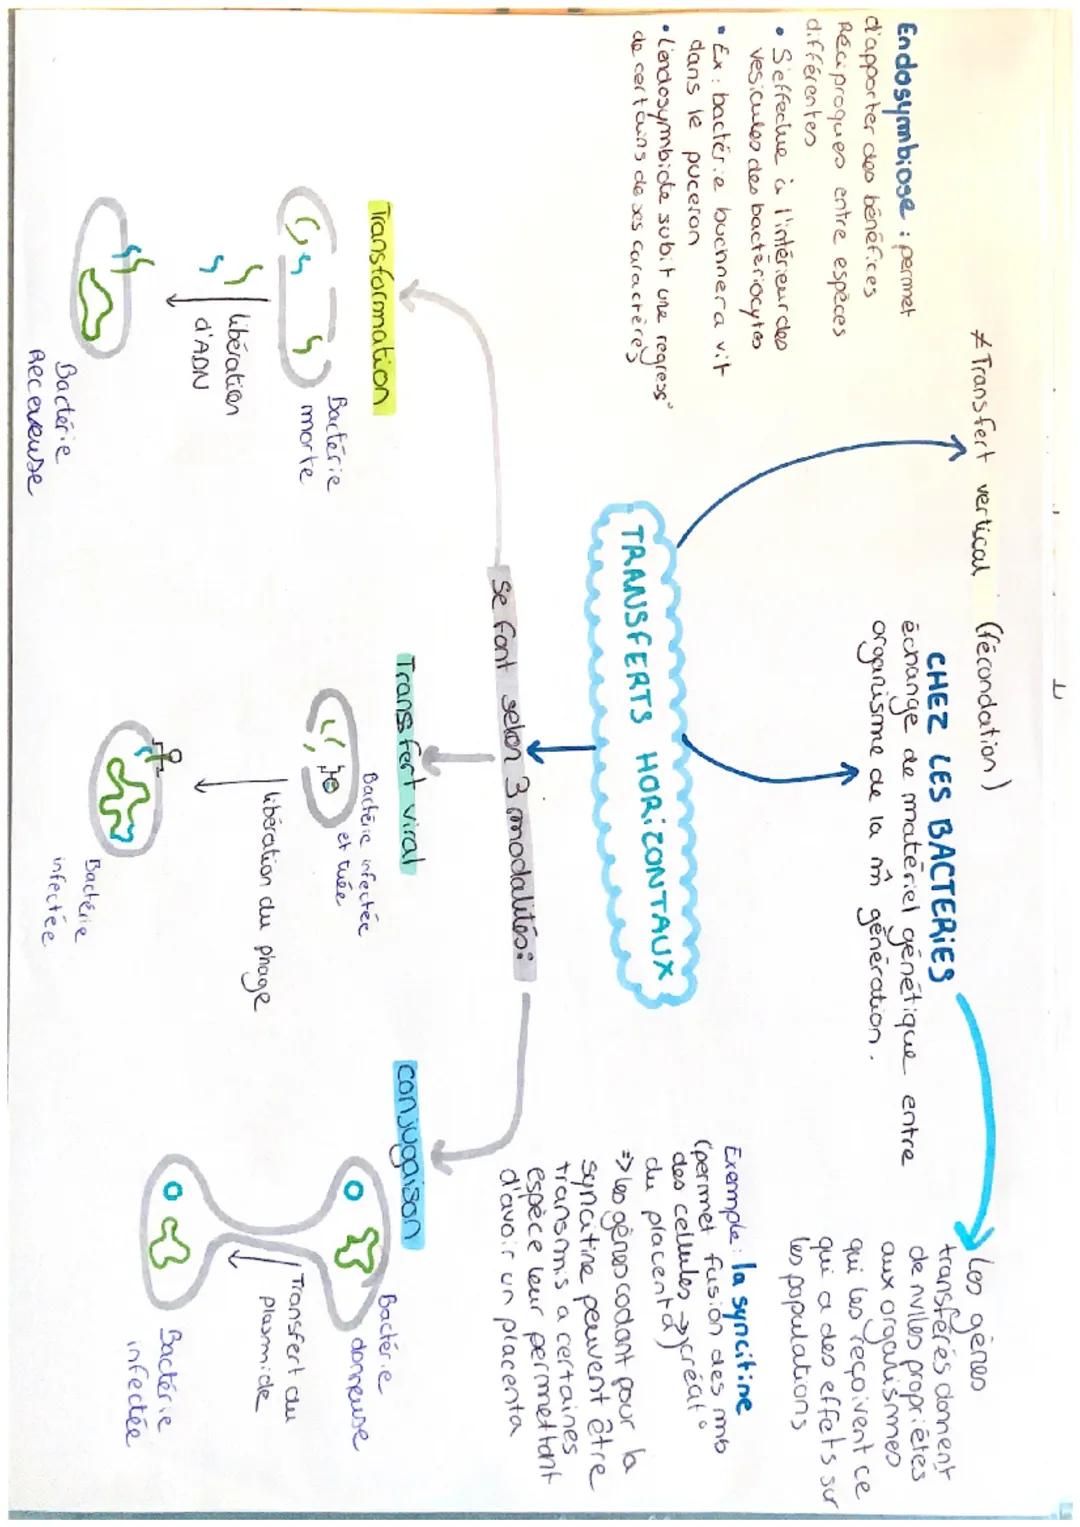 ≠ Transfert vertical (fécondation)
Endosymbiose : permet
d'apporter des bénéfices
Réciproques entre espèces
différentes
• S'effectue à l'intérieur des
vésicules des bactériocytes
• Ex : bactérie buchnera vit
dans le puceron
• L'endosymbiote subit une regress°
de certains de ses caractères
CHEZ LES BACTERIES
échange de matériel génétique entre
organisme de la m̂ génération.
Les gènes
transférés donnent
de nvlles propriétés
aux organismes
qui les reçoivent ce
qui a des effets sur
les populations
TRANSFERTS HORIZONTAUX
Exemple : la syncitine
(permet fusion des mb
des cellules → créat°
du placenta)
=> les gènes codant pour la
syncitine peuvent être
transmis a certaines
espèce leur permettant
d'avoir un placenta
se font selon 3 modalités :
Transformation
Bactérie
morte
libération
d'ADN
Bactérie
Receveuse
Transfert viral
Bactérie infectée
et tuée
libération du phage
Bactérie
infectée
conjugaison
Bactérie
donneuse
Transfert du
plasmide
Bactérie
infectée